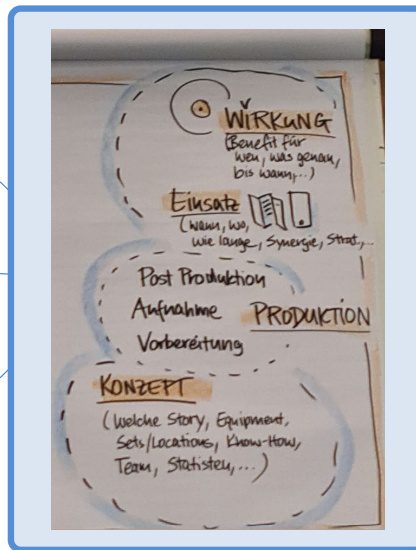 WIRKUNG
(Benefit für
wen, was genau,
bis wann,...)
Einsatz
(wann, wo,
wie lange, Synergie, Strat.,...
Post Produktion
Aufnahme PRODUKTION
Vorbereitung
KONZEPT
(Welche Story, Equipment,
Sets/Locations, Know-How,
Team, Statisten,...)